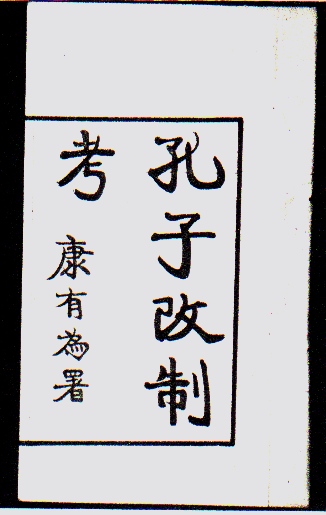 孔子改制
考 康有為署